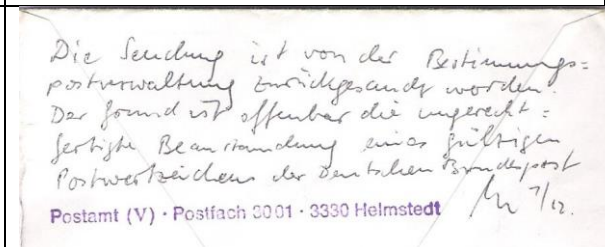 Die Sendung ist von der Bestimmungs=
postverwaltung zurückgesandt worden.
Der Grund ist offenbar die ungerecht=
fertigte Beanstandung eines gültigen
Postwertzeichens der Deutschen Bundespost
Postamt (V) · Postfach 3001 · 3330 Helmstedt